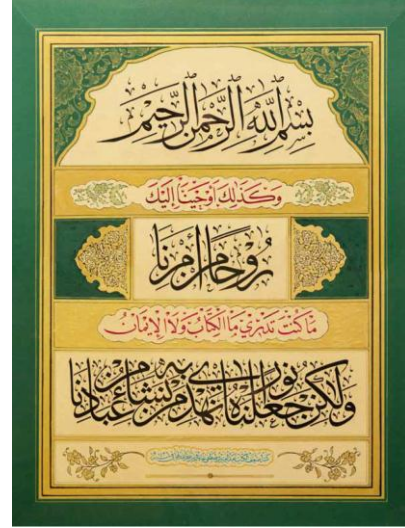 بِسْمِ اللّٰهِ الرَّحْمٰنِ الرَّحِيمِ
وَكَذٰلِكَ أَوْحَيْنَا إِلَيْكَ
رُوحًا مِنْ أَمْرِنَا
مَا كُنْتَ تَدْرِي مَا الْكِتَابُ وَلَا الْإِيمَانُ
وَلٰكِنْ جَعَلْنَاهُ نُورًا نَهْدِي بِهِ مَنْ نَشَاءُ مِنْ عِبَادِنَا